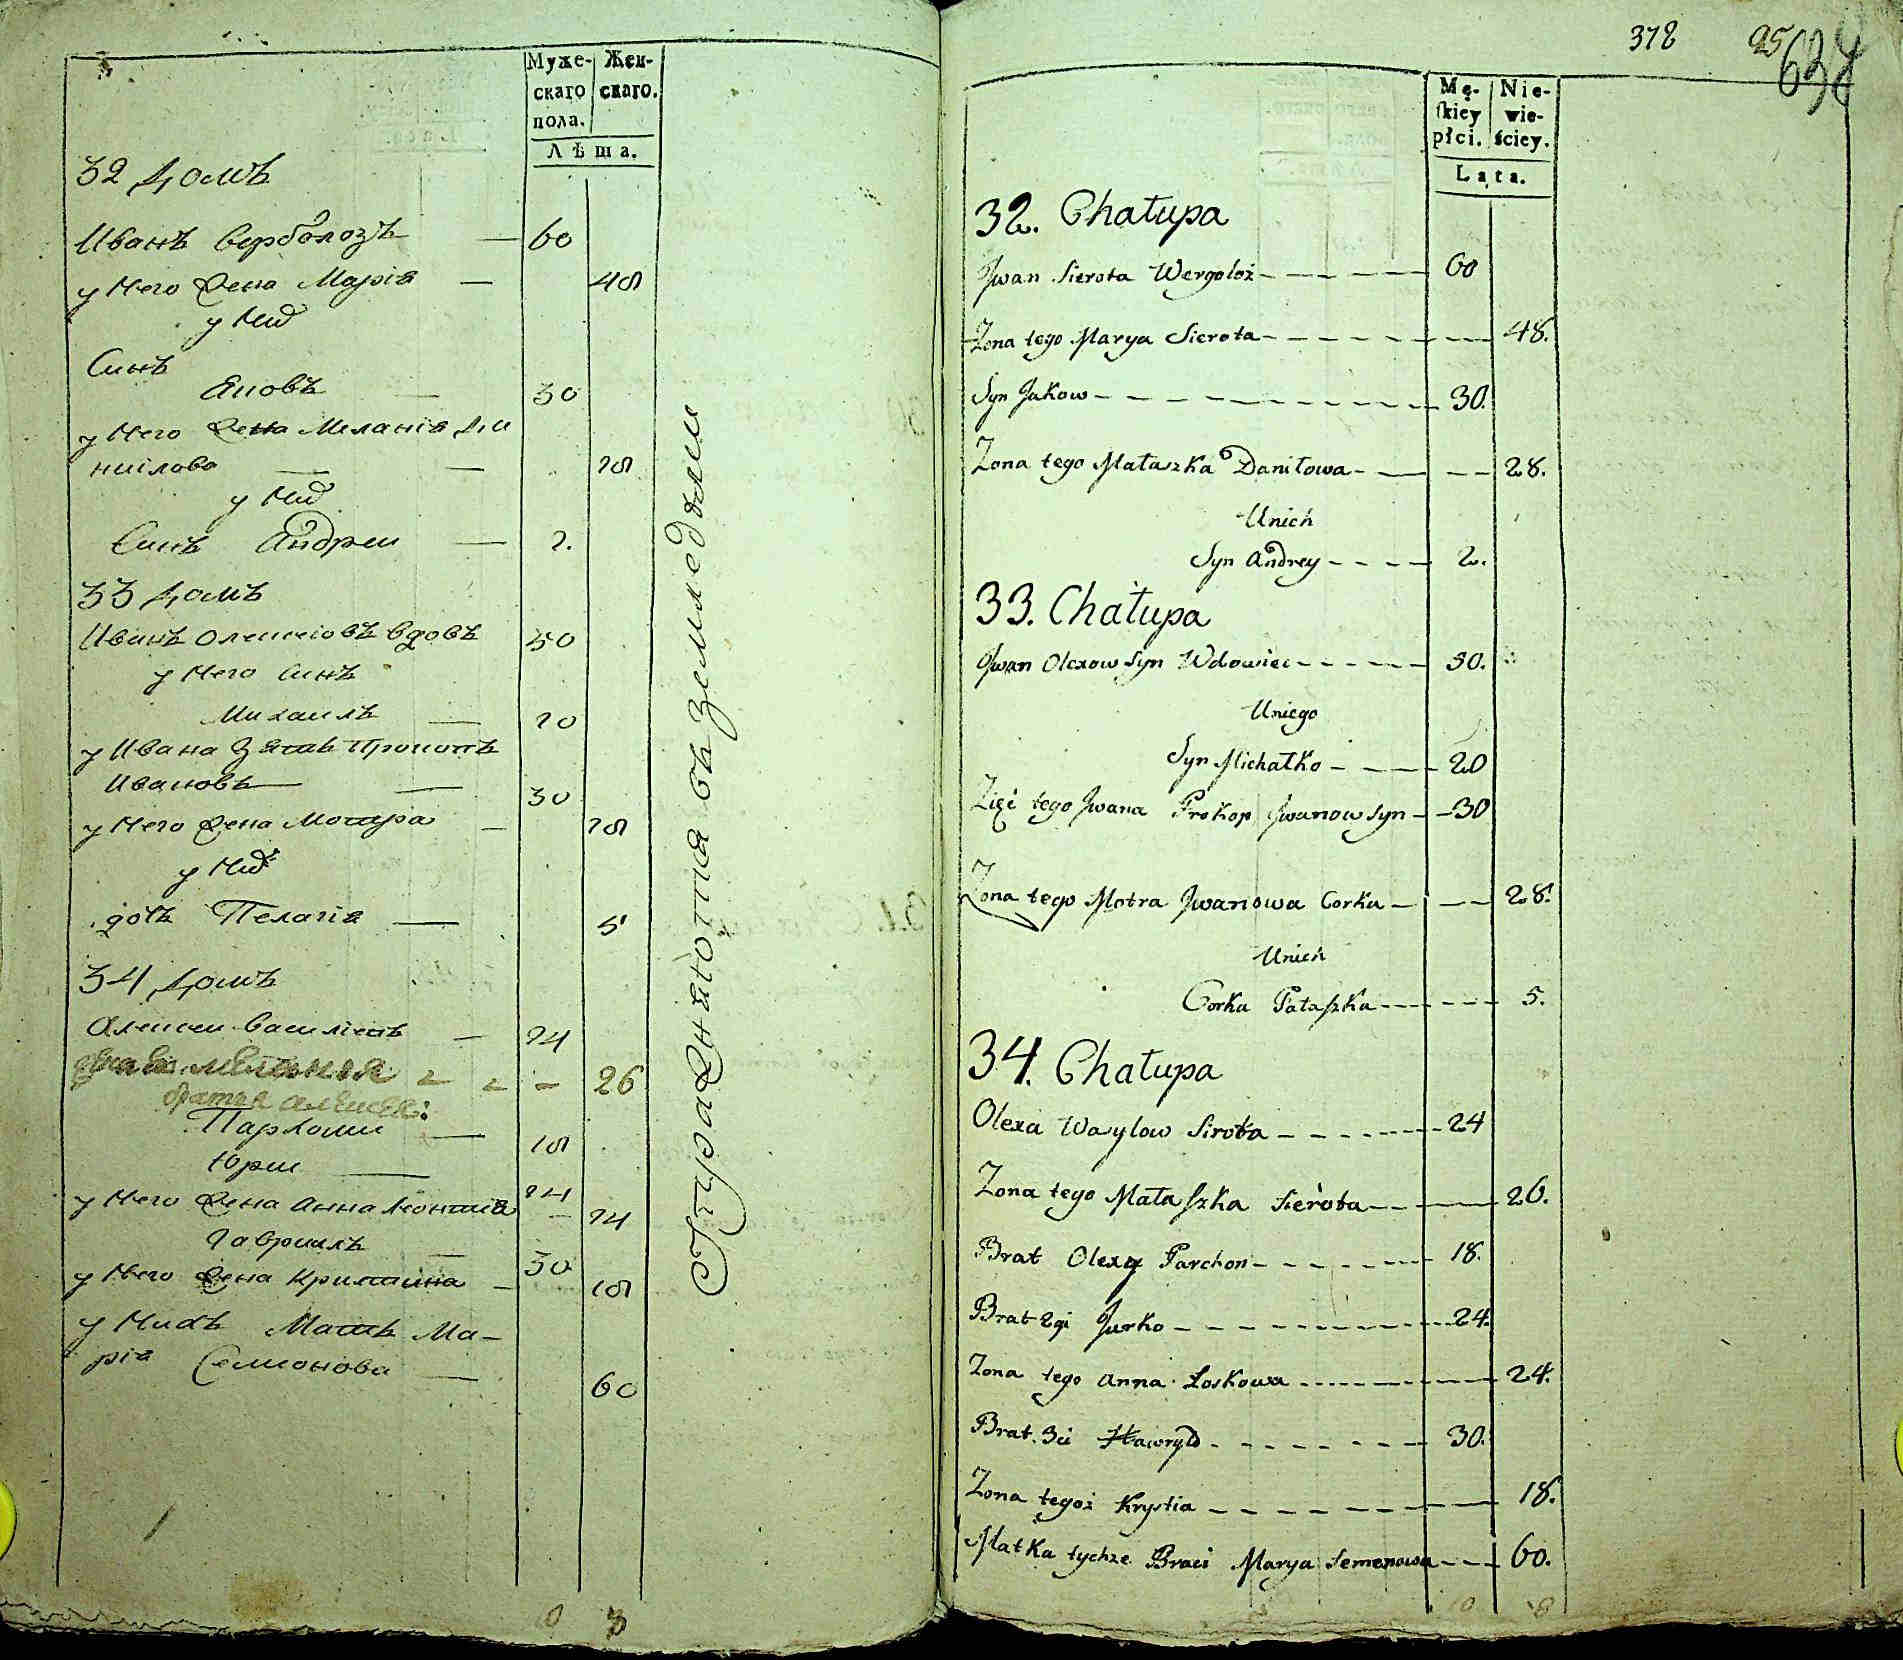 Муже- Жен-
скаго скаго.
пола.
Лѣта.
32 Домъ
Иванъ Верболозъ — 60
у него жена Марія — 48
у них
Синъ
Яковъ — 30
у него жена Меланія Да
нилова — 28
у них
Синъ Андреи — 2.
33 Домъ
Иванъ Олексіовъ вдовъ 50
у него синъ
Михаилъ — 20
у Ивана Зять Прокопъ
Ивановъ — 30
у него жена Мотра — 28
у них
дочъ Пелагія — 5
34 Домъ
Алексеи Василіевъ — 24
жена ево мелания — 26
братья алексея:
Пархоми — 18
Юрии — 24
у него жена Анна Леонтіа — 24
Гавриилъ — 30
у него жена Кристина — 18
у нихъ Мать Ма-
рія Семионова — 60
Упражняются въ земледелии
378 95 638
Mę- Nie-
skiey wie-
płci. ściey.
Lata.
32. Chałupa
Jwan Sierota Wergoloz - - - - 60
Zona tego Marya Sierota - - - - 48.
Syn Jakow - - - - 30.
Zona tego Małaszka Daniłowa - - - - 28.
Unich
Syn Andrey - - - - 2.
33. Chałupa
Jwan Olexow Syn Wdowiec - - - - 50.
Uniego
Syn Michałko - - - - 20
Zięć tego Jwana Prokop Jwanow Syn - - 30
Zona tego Motra Jwanowa Corka - - - - 28.
Unich
Corka Pałaszka - - - - 5.
34. Chałupa
Olexa Wasylow Sirota - - - - 24
Zona tego Małaszka Sierota - - - - 26.
Brat Olexy Parchon - - - - 18.
Brat 2gi Jurko - - - - 24.
Zona tego Anna Loskowa - - - - 24.
Brat. 3ci Hawryło - - - - 30.
Zona tegoż Krystia - - - - 18.
Matka tychże Braci Marya Semenowa - - - 60.